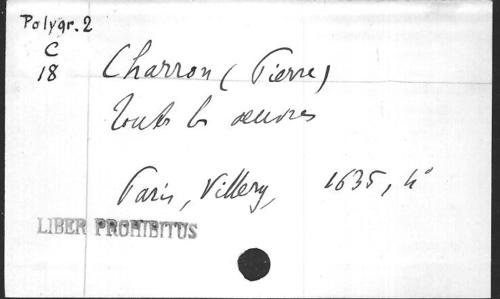 Polygr. 2
C
18
Charron (Pierre)
Toutes les oeuvres
Paris, Villery, 1635, 4°
LIBER PROHIBITUS